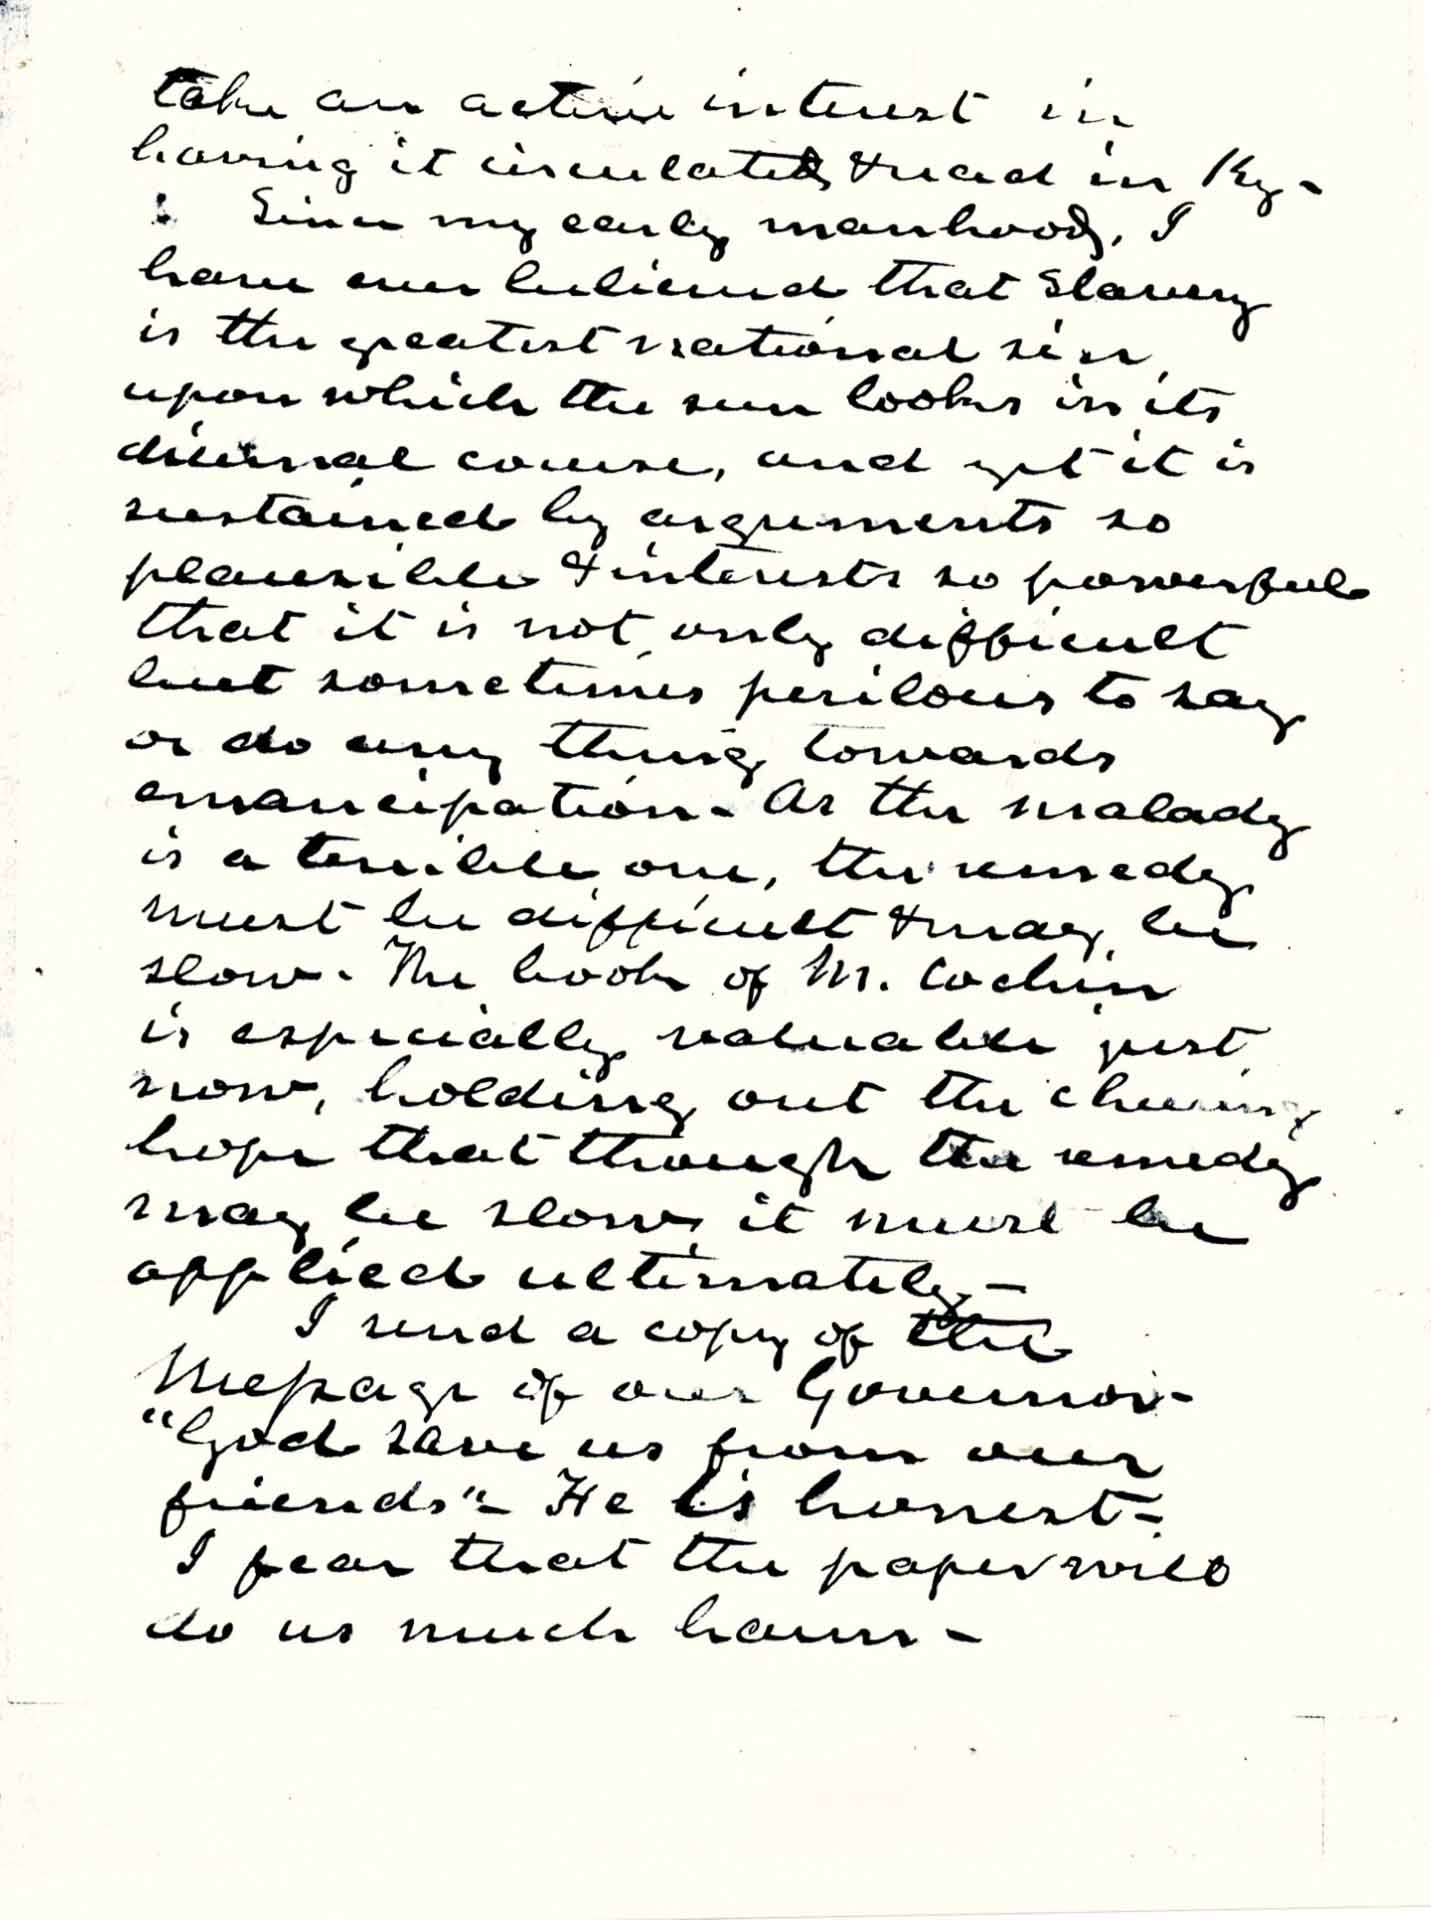 take an active interest in
having it circulated & read in Ky-
Since my early manhood, I
have ever believed that Slavery
is the greatest national sin,
upon which the sun looks in its
diurnal course, and yet it is
sustained by arguments so
plausible & interests so powerful
that it is not only difficult
but sometimes perilous to say
or do any thing towards
emancipation- As the malady
is a terrible one, the remedy
must be difficult & may be
slow. The book of M. Cochin
is especially valuable just
now, holding out the cheering
hope that though the remedy
may be slow, it must be
applied ultimately-
I send a copy of the
Message of our Governor-
"God save us from our
friends"- He is honest-
I fear that the paper will
do us much harm-